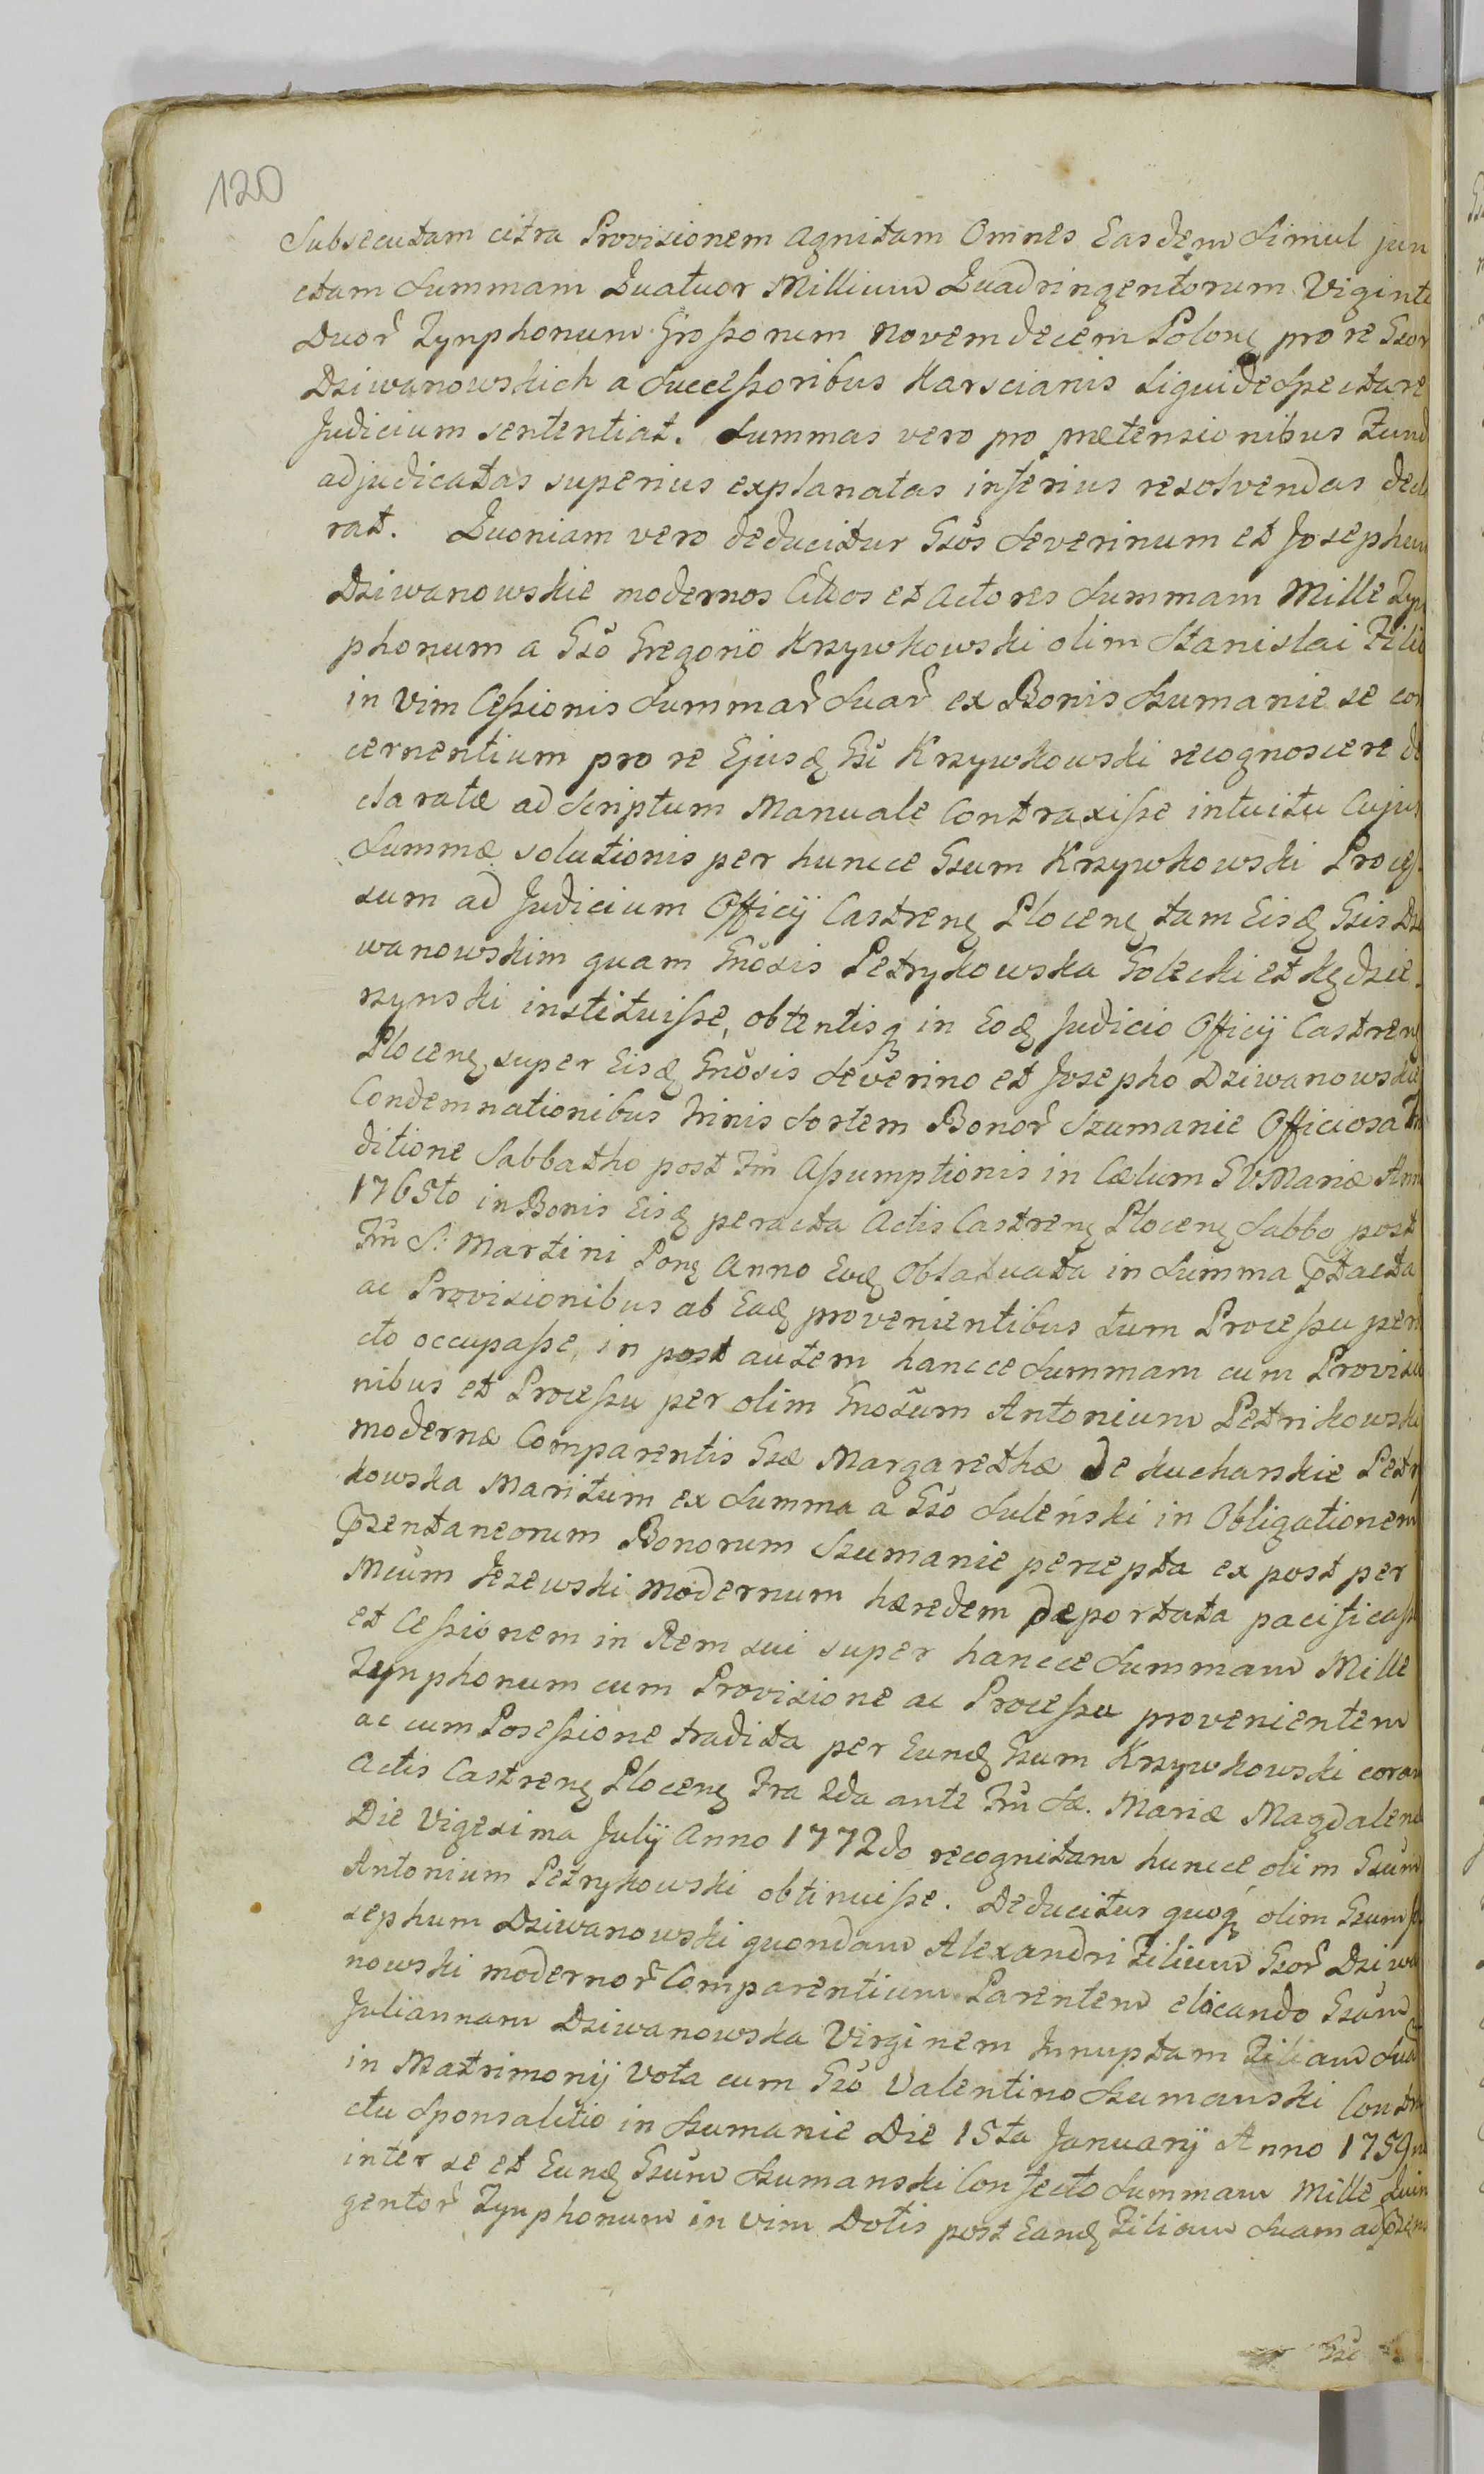 120
Subsecutam citra Provisionem agnitam Omnes Easdem Simul jun
ctam Summam Quatuor Millium Quadringentorum Viginti
Duor̃ Tynphonum Grossorum Novemdecem Polonę pro re Gsor
Dziwanowskich a Successoribus Karscianis liquide Spectare
Judicium sententiat. Summas vero pro prætensionibus Fund
adjudicatas superius explanatas inferius resolvendas decla
rat. Quoniam vero deducitur Gsos Severinum et Josephum
Dziwanowskie modernos Cittos et Actores Summam Mille Tyn
phonum a Gso Gregorio Krzywkowski olim Stanislai Filio
in Vim Cessionis Summar̃ Suar̃ ex Bonis Szumanie se con
cernentium pro re Ejusdę Gsi Krzywkowski recognoscere de
claratæ ad Scriptum Manuale Contraxisse intuitu Cujus
Summæ solutionis per huncce Gsum Krzywkowski Proces
sum ad Judicium Officij Castrenę Plocenę tam Eisdę Gsis Dzi
wanowskim quam Gnosis Petrykowska Golecki et Kędzie
rzynski instituisse, obtentisq̃ in Eodę Judicio Officij Castrenę
Plocenę super Eisdę Gnosis Severino et Josepho Dziwanowskie
Condemnationibus trinis Sortem Bonor̃ Szumanie Officiosa Tra
ditione Sabbatho post Fm̃ Assumptionis in Cælum G V Mariæ Ann
1765to in Bonis Eisdę peracta Actis Castrenę Plocenę Sabbo post
Fm̃ S: Martini Ponę Anno Eodę Oblatuata in Summa p̃tacta
ac Provisionibus ab Eadę provenientibus tum Processu peni
cto occupasse, in post autem hancce Summam cum Provisio
nibus et Processu per olim Gnosum Antonium Petrikowski
modernæ Comparentis Gsæ Margarethæ De Kucharskie Petry
kowska Maritum ex Summa a Gso Suleński in Obligationem
p̃zentaneorum Bonorum Szumanie percepta ex post per
Mcum Jezewski modernum hæredem deportata pacificasse
et Cessionem in Rem sui super hancce Summam Mille
Tynphonum cum Provisione ac Processu provenientem
ac cum Posessione tradita per Eundę Gsum Krzywkowski coram
Actis Castrenę Plocenę Fra 2da ante Fm̃ Sæ. Mariæ Magdalenæ
Die Vigesima Julij Anno 1772do recognitam huncce olim Gsum
Antonium Petrykowski obtinuisse. Deducitur quoq̃ olim Gsum Jo
sephum Dziwanowski quondam Alexandri Filium Gsor̃ Dziwa
nowski modernor̃ Comparentium Parentem elocando Gsam
Juliannam Dziwanowska Virginem Innuptam Filiam Suã
in Matrimonij Vota cum Gso Valentino Szumanski Contra
ctu Sponsalitio in Szumanie Die 15ta Januarij Anno 1759no
inter se et Eundę Gsum Szumanski Confecto Summam Mille Quin
gentor̃ Tynphonum in vim Dotis post Eandę Filiam Suam ad p̃zens
Gsi